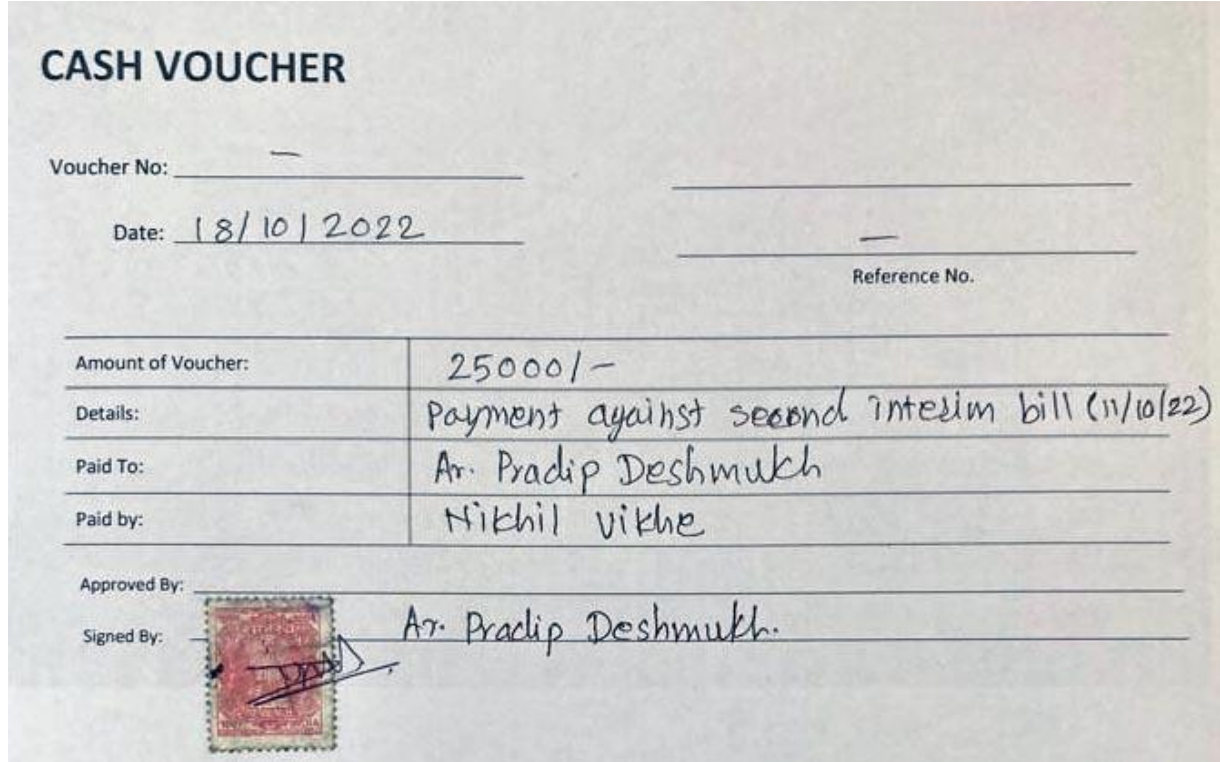 CASH VOUCHER
Voucher No: –
Date: 18/10/2022
–
Reference No.
Amount of Voucher: 25000/-
Details: Payment against second interim bill (11/10/22)
Paid To: Ar. Pradip Deshmukh
Paid by: Nikhil Vikhe
Approved By:
Signed By: Ar. Pradip Deshmukh.